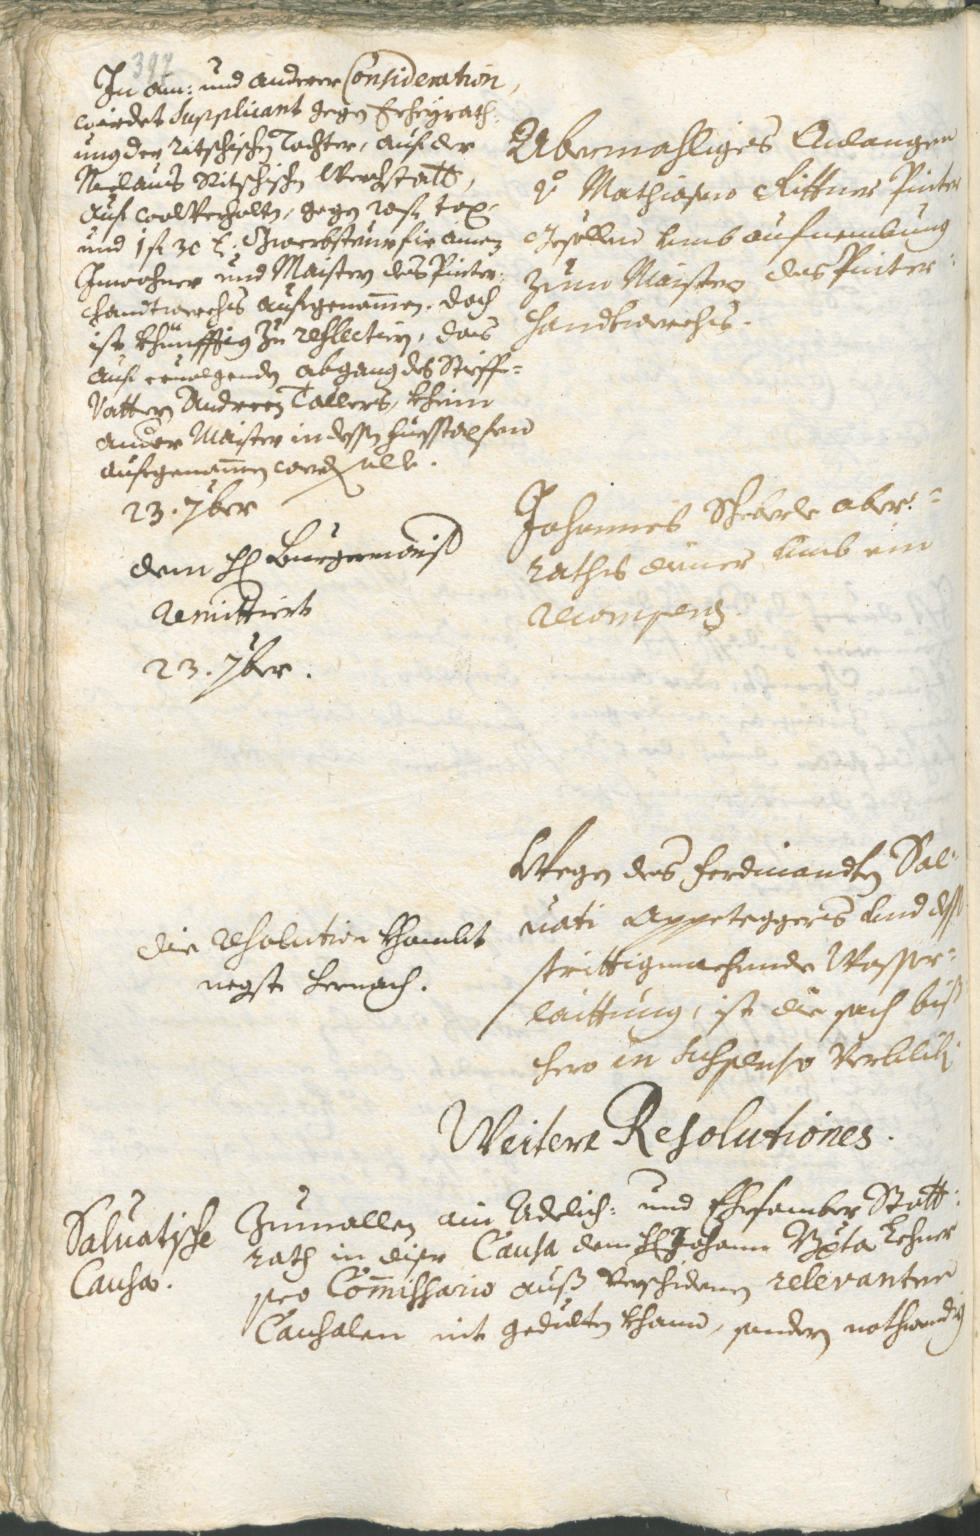 397
In ain: und anderer Consideration,
wirdet Supplicant gegen Eheyrath-
ung der Nitschischen Tochter, auf der
Niclaus Nitschischen Werchstatt,
auf Wolverhalten, gegen Tax
und 1 fl 30 x. für ainen
Inwohner und Maister des Pinter-
handtwerchs aufgenommen. doch
ist khünfftig zu reflectirn, das
auf ervolgenden abgang des Stieff-
Vattern Andreen Tallers, khein
anderer Maister in dessen Fuessstapfen
aufgenommen werden solle.
23. 7ber
Abermahliges Anlangen
Mathiasen Rittner Pinter
gesellen umb aufnembung
zum Maister des Pinter-
handtwerchs.
dem H: Burgermaister
remittiert
23. 7ber.
Johannes Aber-
raths diener umb ein
recompens.
die resolution khombt
negst hernach.
Wegen des Ferdinandten Sal-
uati Appeteggers und dess
strittigmachende Wasser-
laittung, ist die sach biß
hero in suspenso verbliben
Weitere Resolutiones.
Saluatische
Causa.
Zumallen ain Adelich: und Ehrsamber Statt-
rath in diser Causa dem H: Johann Bapta Lehner
pro Commissario auß verschidenen relevanten
Causalen nit gedulten khann, sondern nothwendig